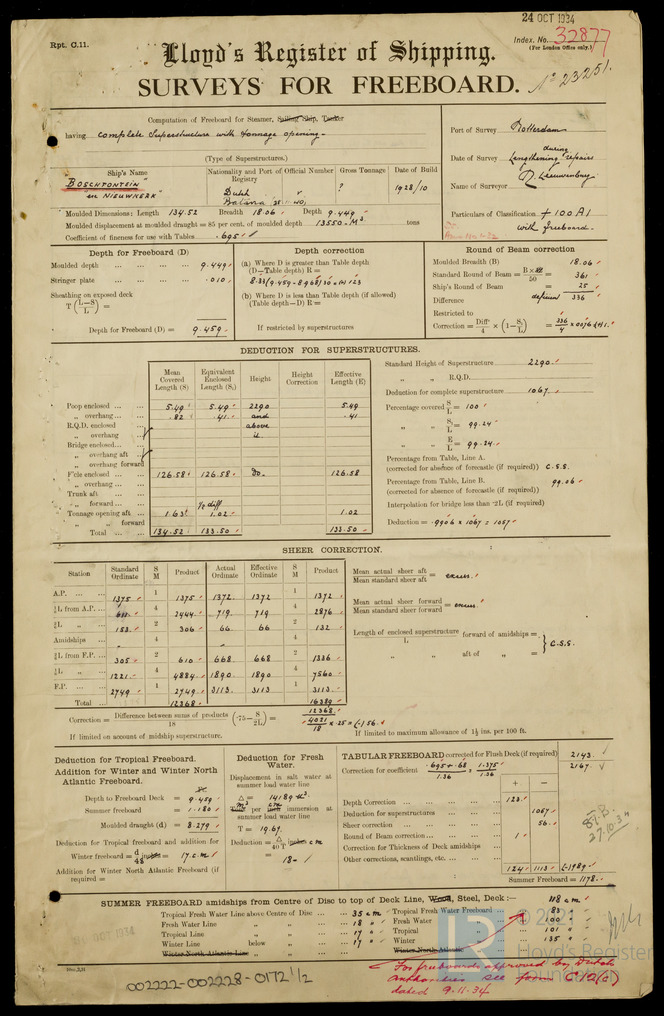 24 OCT 1934
Rpt. C.11.
Index. No. 32877
(For London Office only.)
Lloyd's Register of Shipping.
SURVEYS FOR FREEBOARD.
No 23251.
Computation of Freeboard for Steamer, Sailing Ship, Tanker
having complete superstructure with tonnage opening
(Type of Superstructures.)
Port of Survey Rotterdam
Date of Survey during lengthening repairs
Name of Surveyor
Particulars of Classification + 100 A1
with freeboard.
Ship's Name
Nationality and Port of Registry
Official Number
Gross Tonnage
Date of Build
"BOSCHFONTEIN"
ex NIEUWKERK"
Dutch
?
1928/10
Moulded Dimensions: Length 134.52 Breadth 18.06 Depth 9.449
Moulded displacement at moulded draught = 85 per cent. of moulded depth 13550 M3 tons
Coefficient of fineness for use with Tables .695
Depth for Freeboard (D)
Moulded depth ... 9.449
Stringer plate ... .010
Sheathing on exposed deck
T (L-S / L) =
Depth for Freeboard (D) = 9.459
Depth correction
(a) Where D is greater than Table depth
(D-Table depth) R =
8.33 (9.459-8.968) 30 = (+) 123
(b) Where D is less than Table depth (if allowed)
(Table depth-D) R =
If restricted by superstructures
Round of Beam correction
Moulded Breadth (B) 18.06
Standard Round of Beam = B×12 / 50 = 361
Ship's Round of Beam = 25
Difference 336
Restricted to
Correction = Diff / 4 × (1 - S1 / L) = 336 / 4 × .0076 (+) 1.
DEDUCTION FOR SUPERSTRUCTURES.
Mean Covered Length (S)
Equivalent Enclosed Length (S1)
Height
Height Correction
Effective Length (E)
Poop enclosed ... 5.49 5.49 2290 5.49
„ overhang ... .82 .41 and .41
R.Q.D. enclosed above
„ overhang it
Bridge enclosed...
„ overhang aft
„ overhang forward
F'cle enclosed ... 126.58 126.58 Do. 126.58
„ overhang ...
Trunk aft
„ forward ... ½ diff
Tonnage opening aft ... 1.63 1.02 1.02
„ „ forward
Total ... 134.52 133.50 133.50
Standard Height of Superstructure 2290
„ „ R.Q.D.
Deduction for complete superstructure 1067
Percentage covered S / L = 100
„ „ S1 / L = 99.24
„ „ E / L = 99.24
Percentage from Table, Line A.
(corrected for absence of forecastle (if required)) C.S.S.
Percentage from Table, Line B. 99.06
(corrected for absence of forecastle (if required))
Interpolation for bridge less than ·2L (if required)
Deduction = .9906 × 1067 = 1057
SHEER CORRECTION.
Station
Standard Ordinate
S M
Product
Actual Ordinate
Effective Ordinate
S M
Product
A.P. ... 1375 1 1375 1372 1372 1 1372
⅙L from A.P. ... 611 4 2444 719 719 4 2876
⅓L „ 153 2 306 66 66 2 132
Amidships 4 4
⅓L from F.P. ... 305 2 610 668 668 2 1336
⅙L „ 1221 4 4884 1890 1890 4 7560
F.P. ... 2749 1 2749 3113 3113 1 3113
Total ... 12368 16389
12368
Mean actual sheer aft / Mean standard sheer aft = excess.
Mean actual sheer forward / Mean standard sheer forward = excess.
Length of enclosed superstructure / L forward of amidships =
„ „ aft of „ =
C.S.S.
Correction = Difference between sums of products / 18 (·75 - S / 2L) = 4021 / 18 × .25 = (-) 56.
If limited on account of midship superstructure.
If limited to maximum allowance of 1½ ins. per 100 ft.
Deduction for Tropical Freeboard.
Addition for Winter and Winter North Atlantic Freeboard.
Depth to Freeboard Deck = 9.459
Summer freeboard = 1.180
Moulded draught (d) = 8.279
Deduction for Tropical freeboard and addition for
Winter freeboard = d / 48 inches = 17 c.m.
Addition for Winter North Atlantic Freeboard (if required =
Deduction for Fresh Water.
Displacement in salt water at summer load water line
Δ = 14189 M3
per immersion at summer load water line
T = 19.67
Deduction = Δ / 40T inches c m
= 18
TABULAR FREEBOARD corrected for Flush Deck (if required) 2143.
Correction for coefficient .695 + .68 / 1.36 = 1.375 / 1.36 2167.
+ -
Depth Correction ... 123
Deduction for superstructures ... 1057
Sheer correction ... 56
Round of Beam correction ... 1
Correction for Thickness of Deck amidships
Other corrections, scantlings, etc. ...
124 1113 (-) 989
Summer Freeboard = 1178.
27.10.34
SUMMER FREEBOARD amidships from Centre of Disc to top of Deck Line, Wood, Steel, Deck:— 118 c.m.
Tropical Fresh Water Line above Centre of Disc ... 35 c.m.
Fresh Water Line „ „ ... 18 „
Tropical Line „ „ ... 17 „
Winter Line below „ ... 17 „
Winter North Atlantic Line „ „
Tropical Fresh Water Freeboard ... 83
Fresh Water „ ... 100
Tropical „ ... 101
Winter „ ... 135
Winter North Atlantic
© 2021
Lloyd's Register
Foundation
OCT 1934
002222-002228-0172 1/2
For freeboards approved by Dutch
authorities see form C12(c)
dated 9.11.34